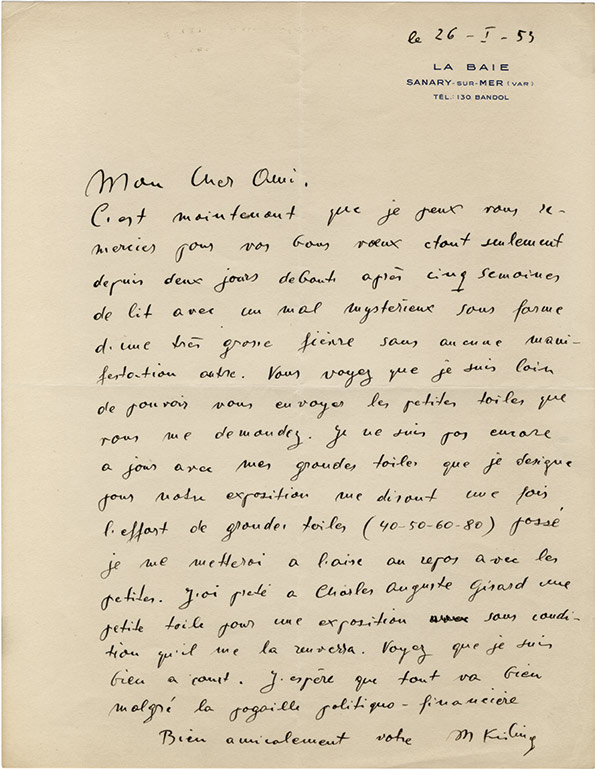 le 26 - I - 53
LA BAIE
SANARY-SUR-MER (VAR)
TÉL.: 130 BANDOL
Mon Cher Ami.
C'est maintenant que je peux vous re-
mercier pour vos bons vœux étant seulement
depuis deux jours debout après cinq semaines
de lit avec un mal mystérieux sous forme
d'une très grosse fièvre sans aucune mani-
festation autre. Vous voyez que je suis loin
de pouvoir vous envoyer les petites toiles que
vous me demandez. Je ne suis pas encore
a jours avec mes grandes toiles que je designe
pour notre exposition me disant une fois
l'effort de grandes toiles (40-50-60-80) passé
je me metterai a l'aise au repos avec les
petites. J'ai preté a Charles Auguste Girard une
petite toile pour une exposition sous condi-
tion qu'il me la renverra. Voyez que je suis
bien a court. J'espère que tout va bien
malgré la pagaille politique - financière
Bien amicalement votre M Kisling